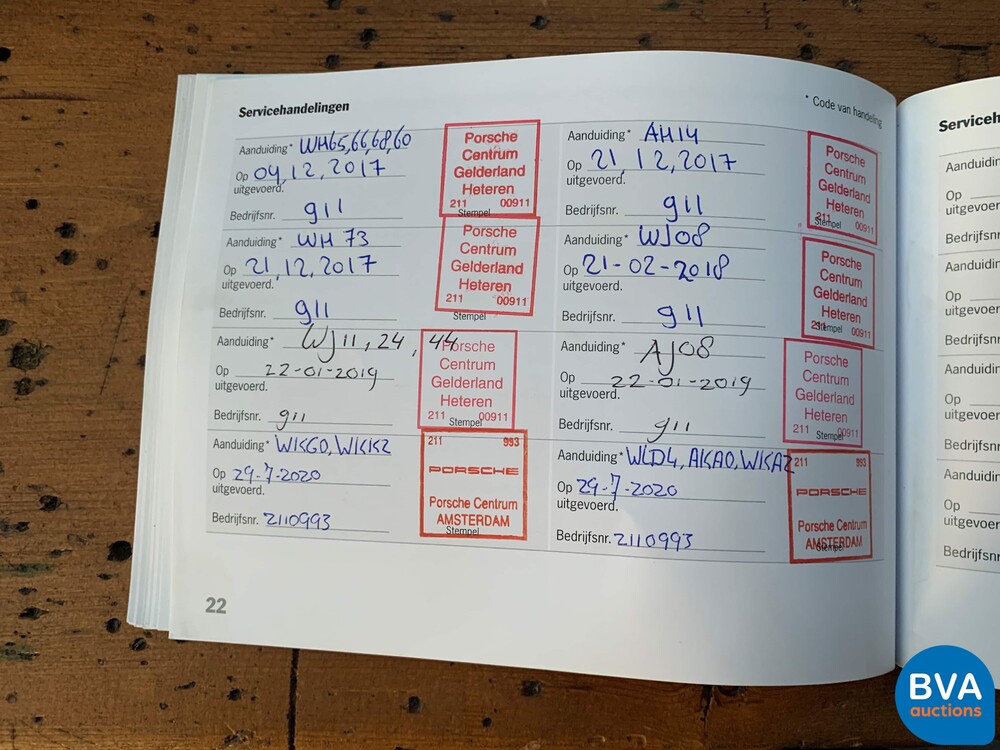 Servicehandelingen
* Code van handeling
Aanduiding* WH65,66,68,60
Op 04,12,2017
uitgevoerd.
Bedrijfsnr. 911
Porsche
Centrum
Gelderland
Heteren
211 00911
Stempel
Aanduiding* AH14
Op 21,12,2017
uitgevoerd.
Bedrijfsnr. 911
Porsche
Centrum
Gelderland
Heteren
211 00911
Stempel
Aanduiding* WH 73
Op 21,12,2017
uitgevoerd.
Bedrijfsnr. 911
Porsche
Centrum
Gelderland
Heteren
211 00911
Stempel
Aanduiding* WJ08
Op 21-02-2018
uitgevoerd.
Bedrijfsnr. 911
Porsche
Centrum
Gelderland
Heteren
211 00911
Stempel
Aanduiding* WJ11, 24, 44
Op 22-01-2019
uitgevoerd.
Bedrijfsnr. 911
Porsche
Centrum
Gelderland
Heteren
211 00911
Stempel
Aanduiding* AJ08
Op 22-01-2019
uitgevoerd.
Bedrijfsnr. 911
Porsche
Centrum
Gelderland
Heteren
211 00911
Stempel
Aanduiding* WKG0, WKK2
Op 29-7-2020
uitgevoerd.
Bedrijfsnr. 2110993
211 993
PORSCHE
Porsche Centrum
AMSTERDAM
Stempel
Aanduiding* WLD4, AKA0, WKA2
Op 29-7-2020
uitgevoerd.
Bedrijfsnr. 2110993
211 993
PORSCHE
Porsche Centrum
AMSTERDAM
Stempel
22
Serviceh
Aanduidin
Op
uitgevoer
Bedrijfsnr
Aanduidin
Op
uitgevoer
Bedrijfsnr
Aanduidin
Op
uitgevoer
Bedrijfsnr
Aanduidin
Op
uitgevoer
Bedrijfsnr
BVA
auctions